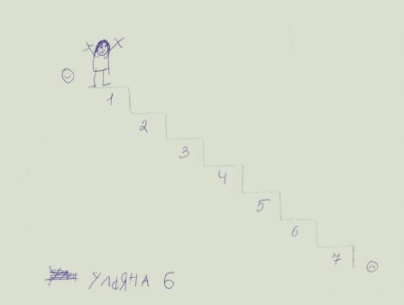 1
2
3
4
5
6
7
Уляна 6